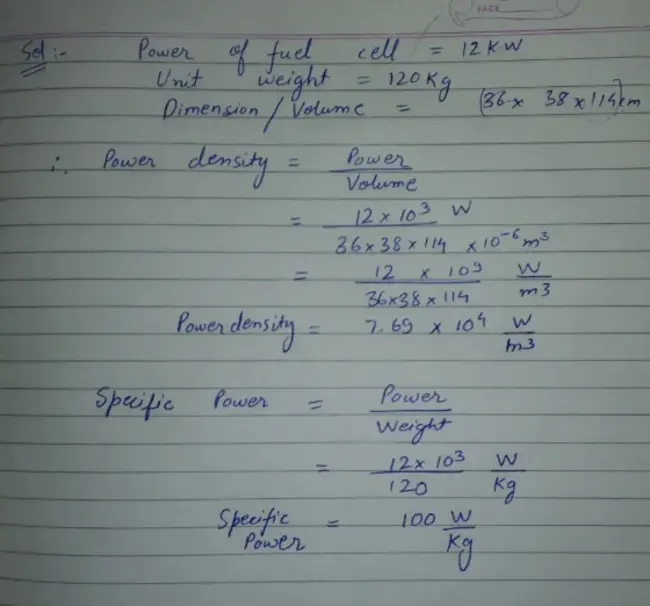 Sol :-
Power of fuel cell = 12 KW
Unit weight = 120 Kg
Dimension / Volume = (36 x 38 x 114) cm
∴ Power density = Power / Volume
= 12 x 10³ W / 36 x 38 x 114 x 10⁻⁶ m³
= 12 x 10⁹ / 36x38 x 114 W / m3
Power density = 7.69 x 10⁴ W / m3
Specific Power = Power / Weight
= 12 x 10³ / 120 W / Kg
Specific Power = 100 W / Kg